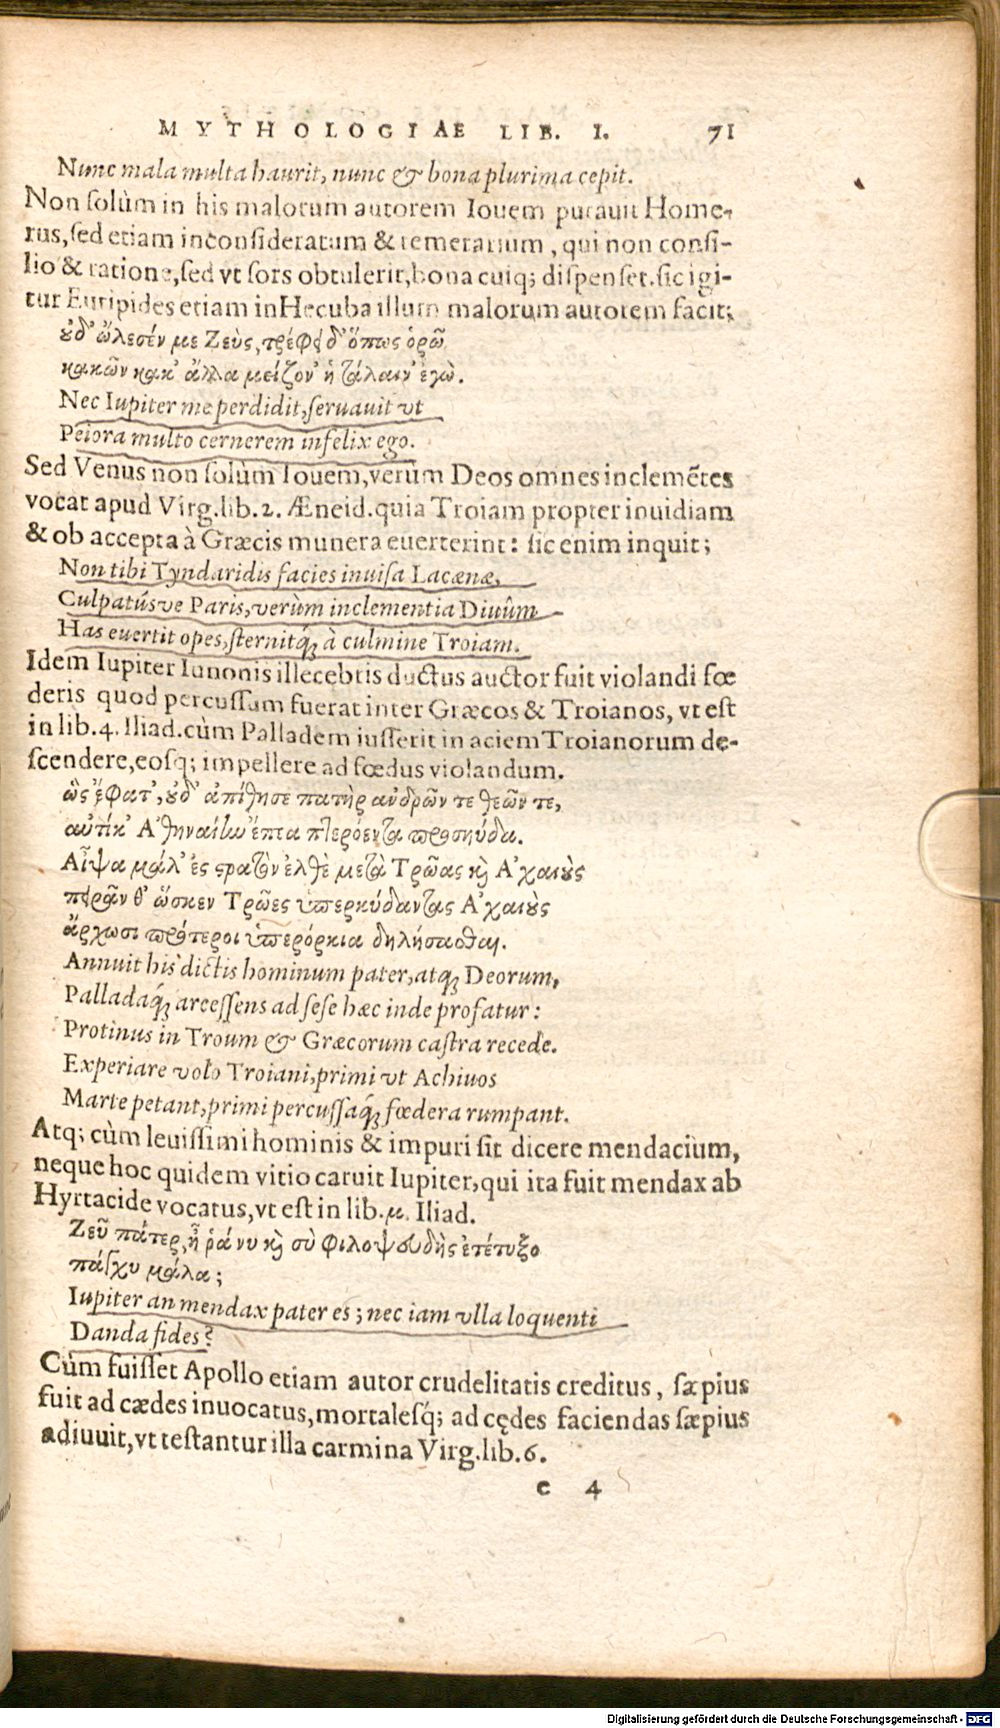 MYTHOLOGIAE LIB. I. 71
Nunc mala multa haurit, nunc & bona plurima cepit.
Non solùm in his malorum autorem Iouem putauit Home-
rus, sed etiam inconsideratum & temerarium, qui non consi-
lio & ratione, sed vt sors obtulerit, bona cuiq; dispenset. sic igi-
tur Euripides etiam in Hecuba illum malorum autorem facit;
οὐδ' ὤλεσέν με Ζεὺς, τρέφει δ' ὅπως ὁρῶ
κακῶν κακ' ἄλλα μείζον' ἡ τάλαιν' ἐγὼ.
Nec Iupiter me perdidit, seruauit vt
Peiora multo cernerem infelix ego.
Sed Venus non solùm Iouem, verùm Deos omnes inclemẽtes
vocat apud Virg. lib. 2. Æneid. quia Troiam propter inuidiam
& ob accepta à Græcis munera euerterint: sic enim inquit;
Non tibi Tyndaridis facies inuisa Lacænæ,
Culpatúsve Paris, verùm inclementia Diuûm
Has euertit opes, sternitq́; à culmine Troiam.
Idem Iupiter Iunonis illecebris ductus auctor fuit violandi fœ
deris quod percussum fuerat inter Græcos & Troianos, vt est
in lib. 4. Iliad. cùm Palladem iusserit in aciem Troianorum de-
scendere, eosq; impellere ad fœdus violandum.
ὣς ἔφατ', οὐδ' ἀπίθησε πατὴρ ἀνδρῶν τε θεῶν τε,
αὐτίκ' Ἀθηναίην ἔπτα πτερόεντα προσηύδα.
Αἶψα μάλ' ἐς στρατὸν ἐλθὲ μετὰ Τρῶας καὶ Ἀχαιοὺς
πειρᾶν θ' ὥσκεν Τρῶες ὑπερκύδαντας Ἀχαιοὺς
ἄρχωσι πρότεροι ὑπερόρκια δηλήσασθαι.
Annuit his dictis hominum pater, atq; Deorum,
Palladaq́; arcessens ad sese hæc inde profatur:
Protinus in Troum & Græcorum castra recede.
Experiare volo Troiani, primi vt Achiuos
Marte petant, primi percussaq́; fœdera rumpant.
Atq; cùm leuissimi hominis & impuri sit dicere mendacium,
neque hoc quidem vitio caruit Iupiter, qui ita fuit mendax ab
Hyrtacide vocatus, vt est in lib. μ. Iliad.
Ζεῦ πάτερ, ἦ ῥά νυ καὶ σὺ φιλοψευδὴς ἐτέτυξο
πάγχυ μάλα;
Iupiter an mendax pater es; nec iam vlla loquenti
Danda fides?
Cùm fuisset Apollo etiam autor crudelitatis creditus, sæpius
fuit ad cædes inuocatus, mortalesq́; ad cędes faciendas sæpius
adiuuit, vt testantur illa carmina Virg. lib. 6.
e 4
Digitalisierung gefördert durch die Deutsche Forschungsgemeinschaft - DFG